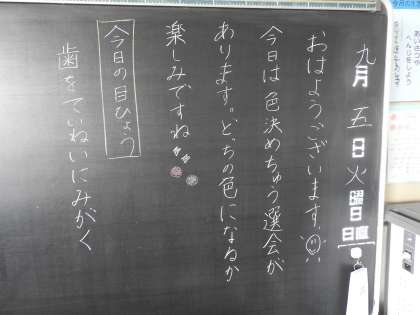 九月五日火曜日
日直
おはようございます。
今日は色決めちゅう選会が
あります。どっちの色になるか
楽しみですね
今日の目ひょう
歯をていねいにみがく